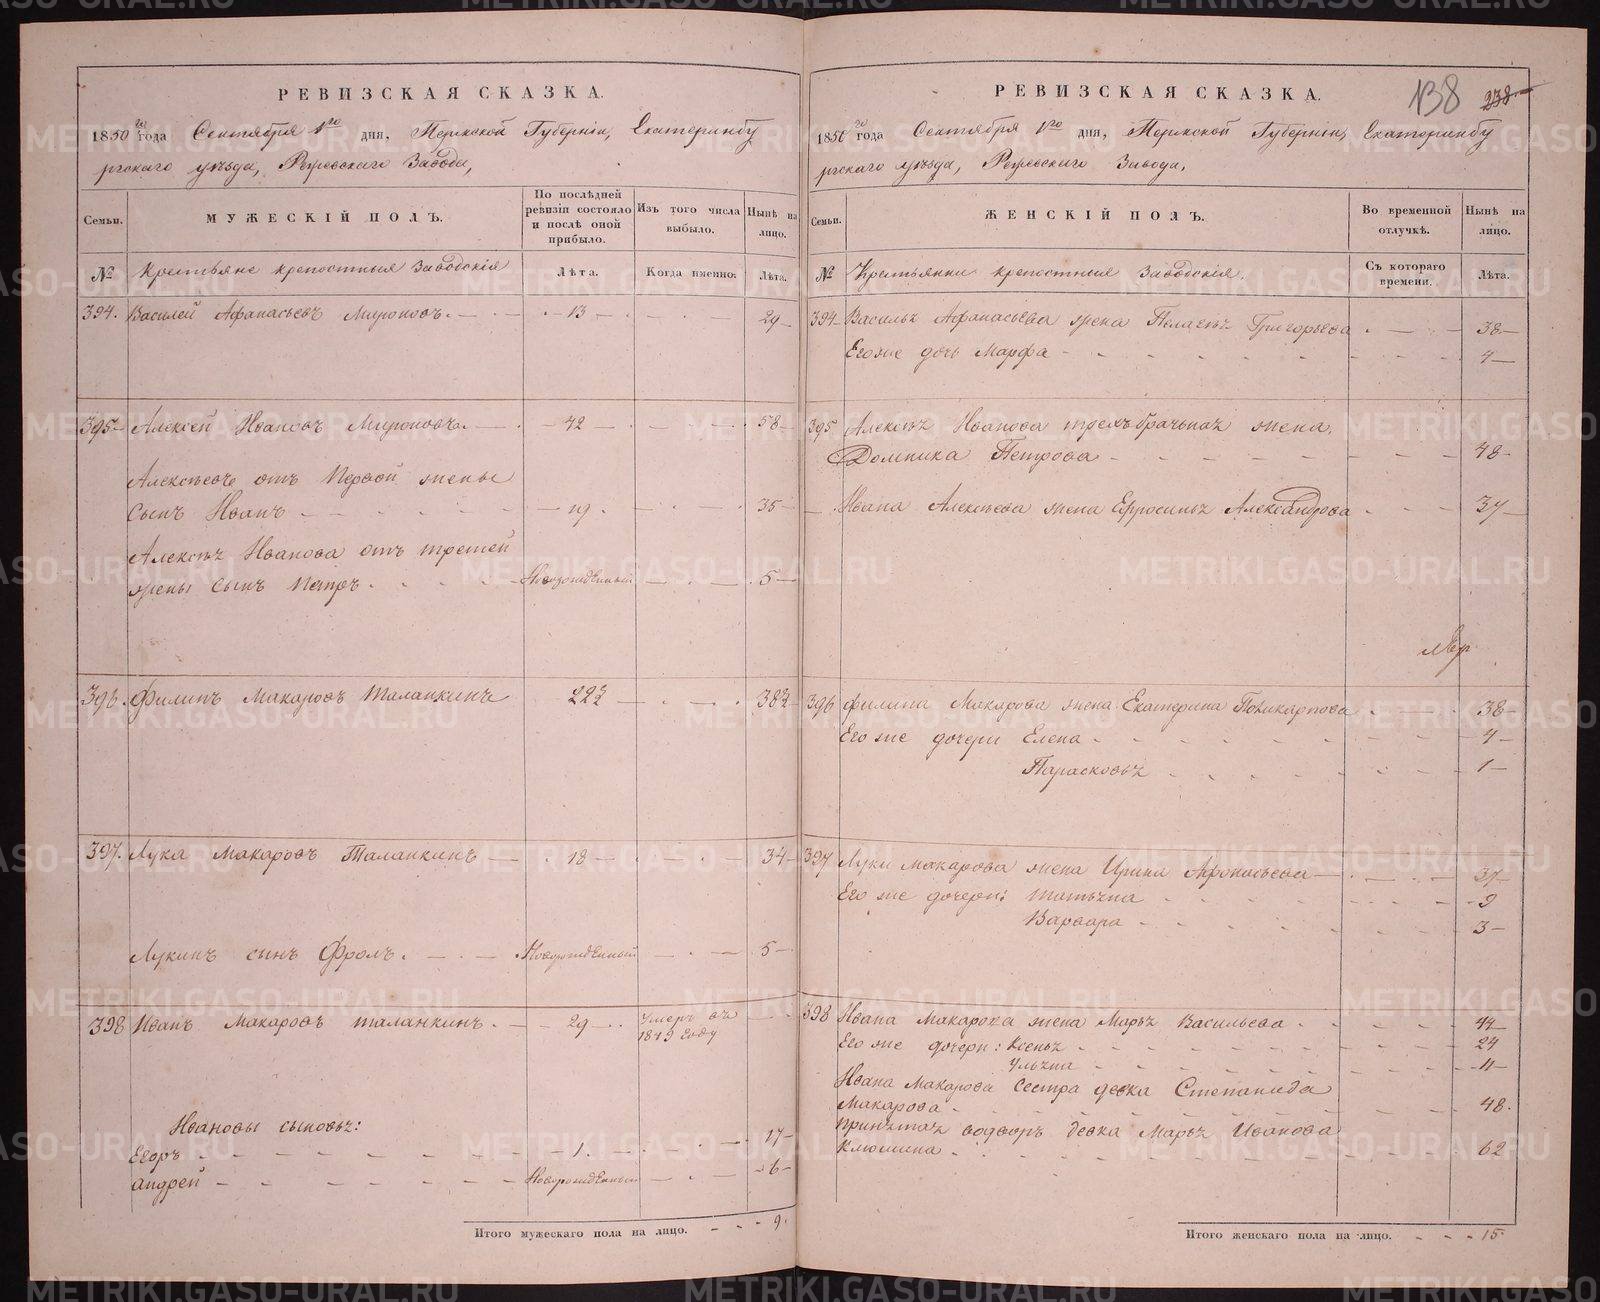 РЕВИЗСКАЯ СКАЗКА.
1850 го года Сентября 1го дня, Пермской Губерніи, Екатеринбу
ргскаго уѣзда, Режевскаго Завода,
Семьи.
МУЖЕСКІЙ ПОЛЪ.
По послѣдней ревизіи состояло и послѣ оной прибыло.
Изъ того числа выбыло.
Нынѣ на лицо.
№ Крестьяне крепостныя Заводскія
Лѣта.
Когда именно:
Лѣта.
394. Василей Афанасьевъ Мироновъ. - 13 - 29
395 Алексѣй Ивановъ Мироновъ. - 42 - 58
Алексѣевъ отъ первой жены
сынъ Иванъ - 19 - 35
Алексѣя Иванова отъ третей
жены сынъ Петръ. - Новорожденный - 5
396. Филипъ Макаровъ Таланкинъ 22½ - 38½
397. Лука Макаровъ Таланкинъ - 18 - 34
Лукинъ сынъ Фролъ. - Новорожденный - 5
398 Иванъ Макаровъ Таланкинъ. - 29 - Умеръ въ
1849 году
Ивановы сыновья:
Егоръ - 1. - 17
Андрей - Новорожденный - 6
Итого мужескаго пола на лицо. - - - 9.
РЕВИЗСКАЯ СКАЗКА.
138 238.
1850 го года Сентября 1го дня, Пермской Губерніи, Екатеринбу
ргскаго уѣзда, Режевскаго Завода.
Семьи.
ЖЕНСКІЙ ПОЛЪ.
Во временной отлучкѣ.
Нынѣ на лицо.
№ Крестьянки крепостныя Заводскія.
Съ котораго времени.
Лѣта.
394 Василья Афанасьева жена Пелагѣя Григорьева - 38
Его же дочь Марфа - 4
395 Алексѣя Иванова трехъбрачьная жена.
Домника Петрова - 48
Ивана Алексѣева жена Ефросинья Александрова - 37
396 Филипа Макарова жена Екатерина Поликарпова - 38
Его же дочери Елена - 4
Парасковья - 1
397 Луки Макарова жена Ирина Афонасьева - 37
Его же дочери: Татьяна - 9
Варвара - 3
398 Ивана Макарова жена Марья Васильева - 44
Его же дочери: Ксенья - 24
Ульяна - 11
Ивана Макарова сестра девка Степанида
Макарова - 48.
Принятая водворъ девка Марья Иванова
Клюшина - 62
Итого женскаго пола на лицо. - - - 15.
METRIKI.GASO-URAL.RU